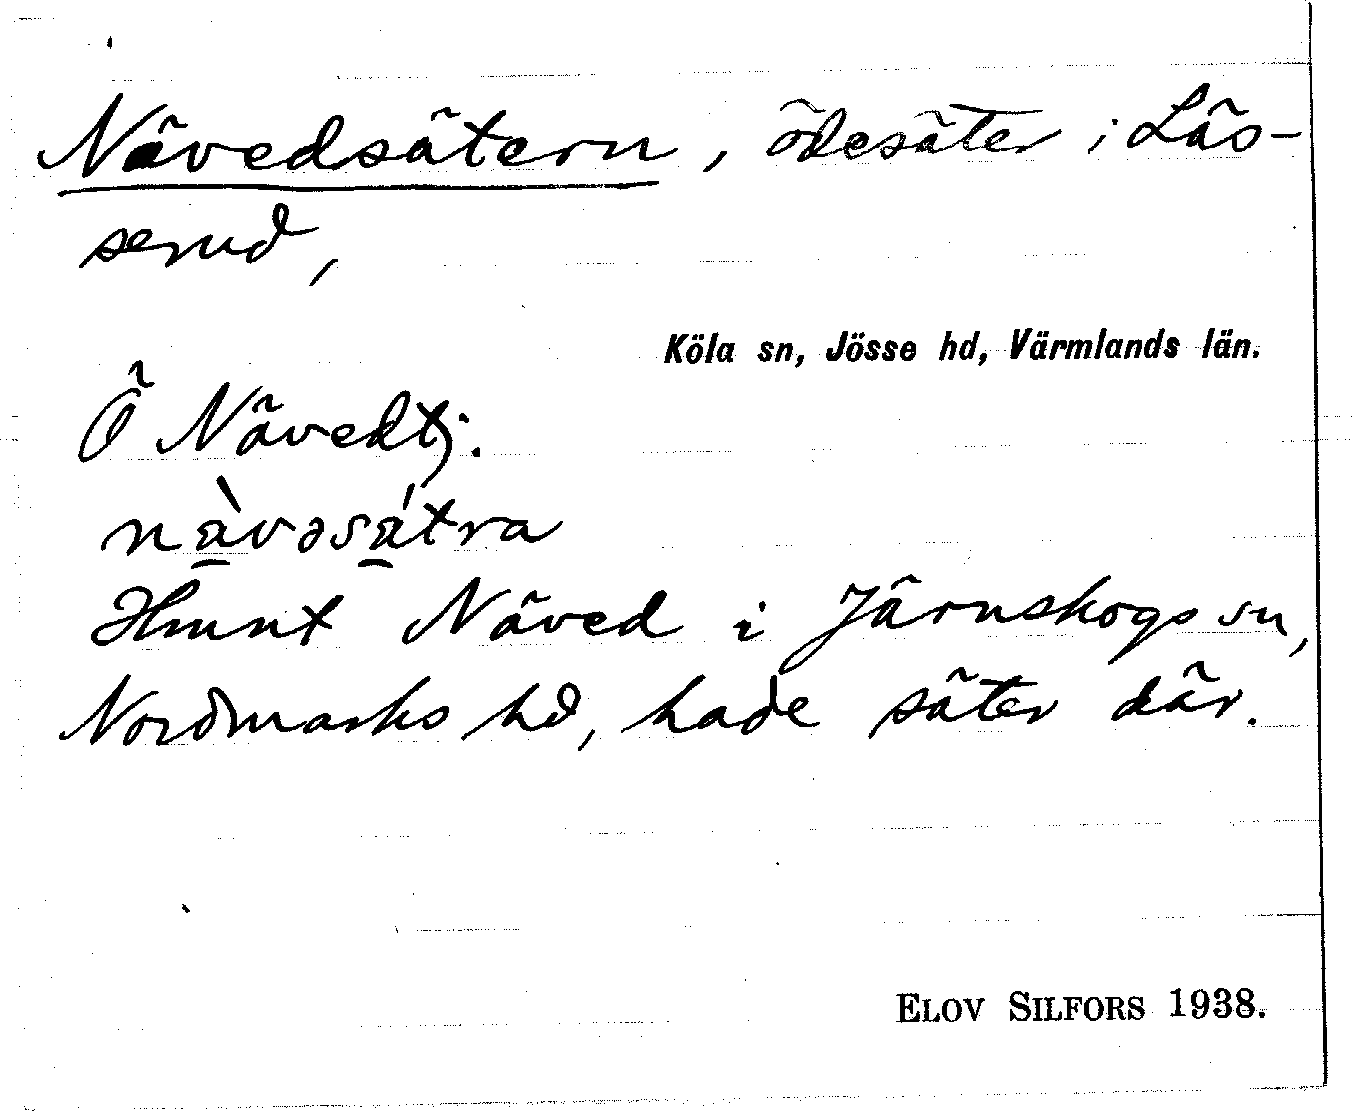 Nävedsätern, ödesäter i Läs-
serud,
Köla sn, Jösse hd, Värmlands län.
Ö Nävedtj.
nàvəsátra
Hmnt Näved i Järnskogs sn,
Nordmarks hd, hade säter där.
ELOV SILFORS 1938.